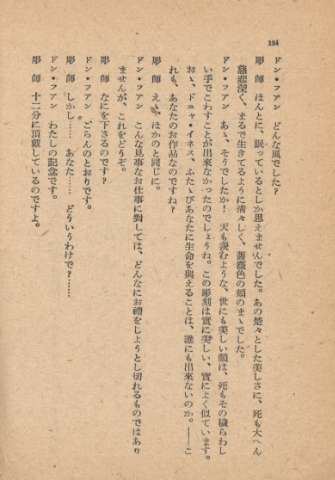 194
ドン・フアン　どんな風でした？
彫　師　ほんとに、眠っているとしか思えませんでした。あの楚々とした美しさに、死も大へん
慈悲深く、まるで生きてるように清々しく、薔薇色の顔のまゝでした。
ドン・フアン　あゝ、そうでしたか！　天も羨むような、世にも美しい顔は、死もその穢らわし
い手でこわすことが出来なかったのでしょうね。この彫刻は實に美しい、實によく似ています。
おゝ、ドニャ・イネス、ふたゝびあなたに生命を與えることは、誰にも出来ないのか。――こ
れも、あなたのお作品なのですね？
彫　師　えゝ、ほかのと同じに。
ドン・フアン　こんな見事なお仕事に對しては、どんなにお禮をしようとし切れるものではあり
ませんが、これをどうぞ。
彫　師　なにを下さるのです？
ドン・フアン　ごらんのとおりです。
彫　師　しかし……　あなた……　どういうわけで？……
ドン・フアン　わたしの記念です。
彫　師　十二分に頂戴しているのですよ。